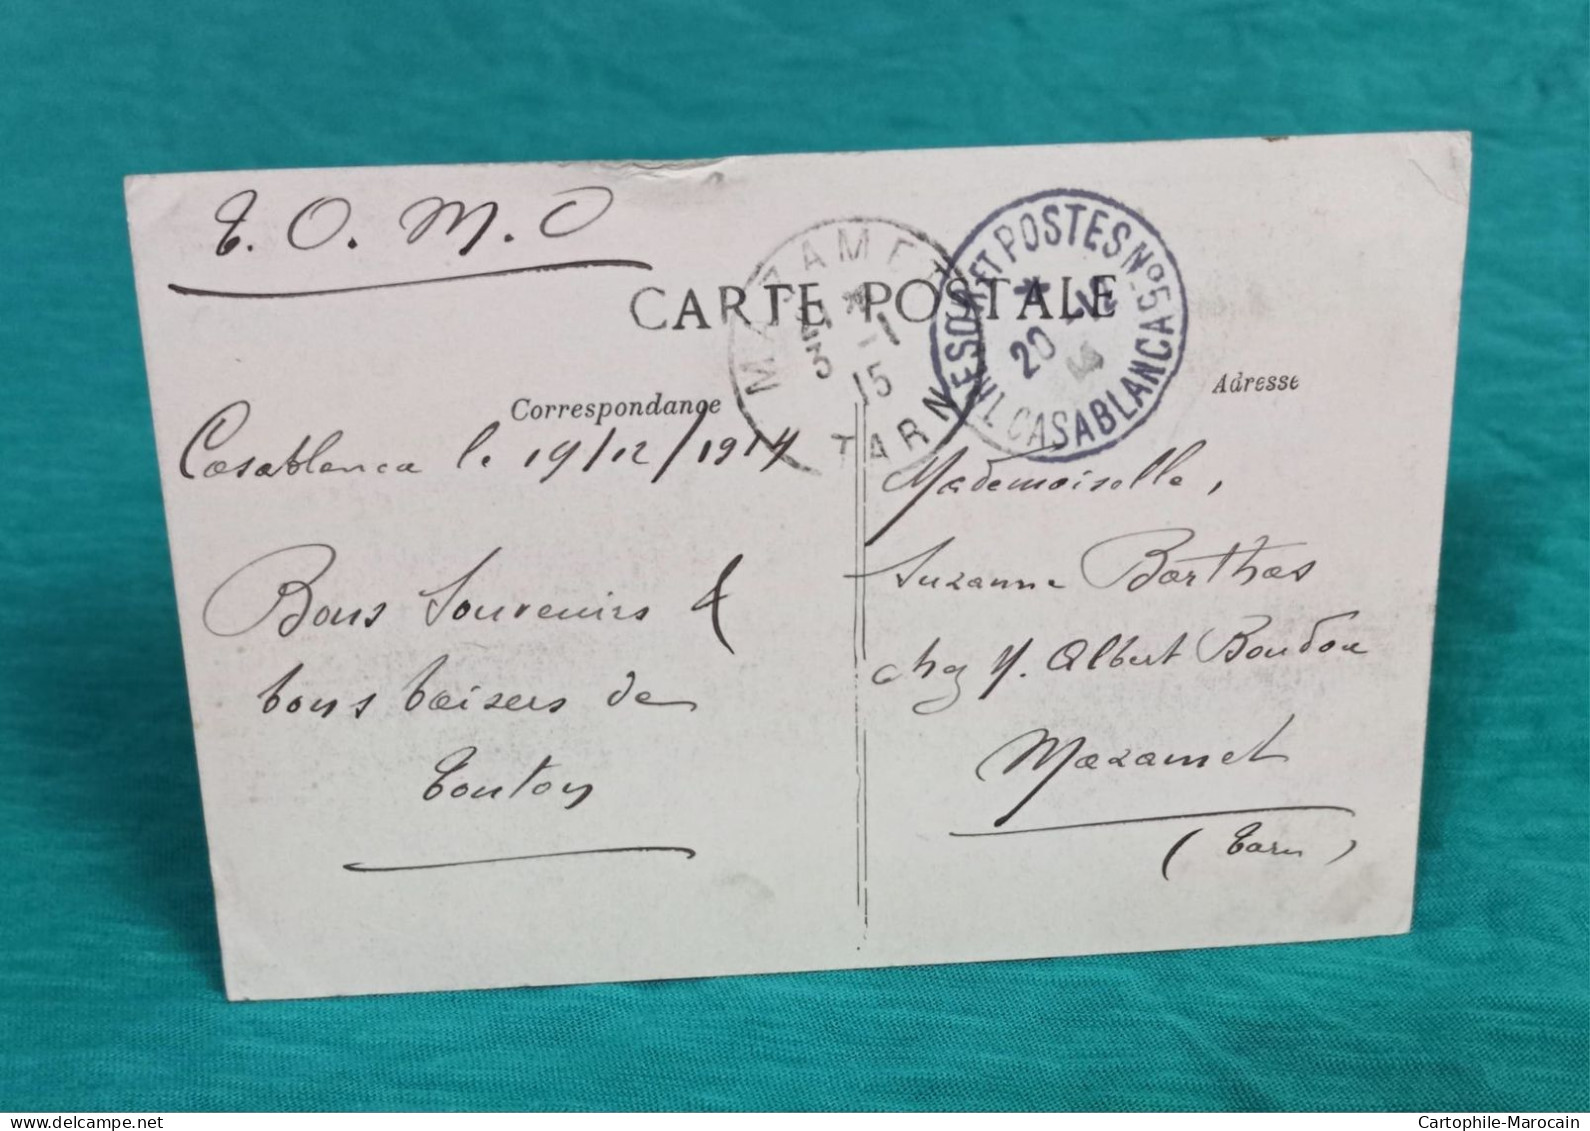 T. O. M. O
CARTE POSTALE
MAZAMET
3 - 1
15
TARN
TRESOR ET POSTES Nº 5
20
CASABLANCA
Correspondance
Adresse
Casablanca le 19/12/1914
Bons Souvenirs &
bons baisers de
Tonton
Mademoiselle,
Suzanne Barthas
chez M. Albert Boudou
Mazamet
(Tarn)
delcampe.net
Cartophile-Marocain